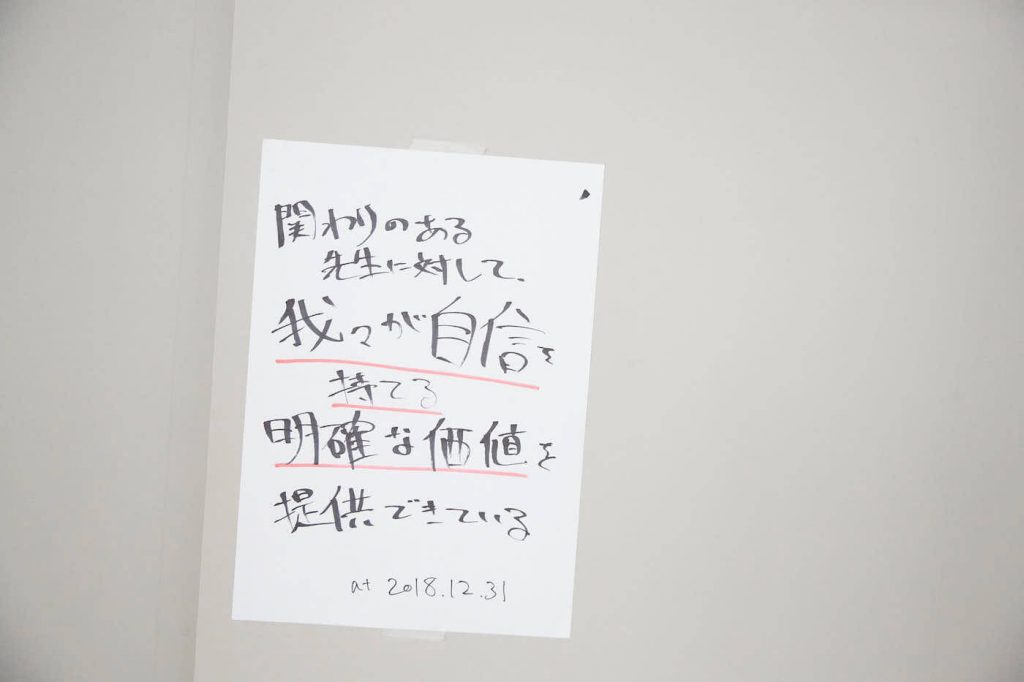 関わりのある
先生に対して、
我々が自信を
持てる
明確な価値を
提供できている
at 2018.12.31